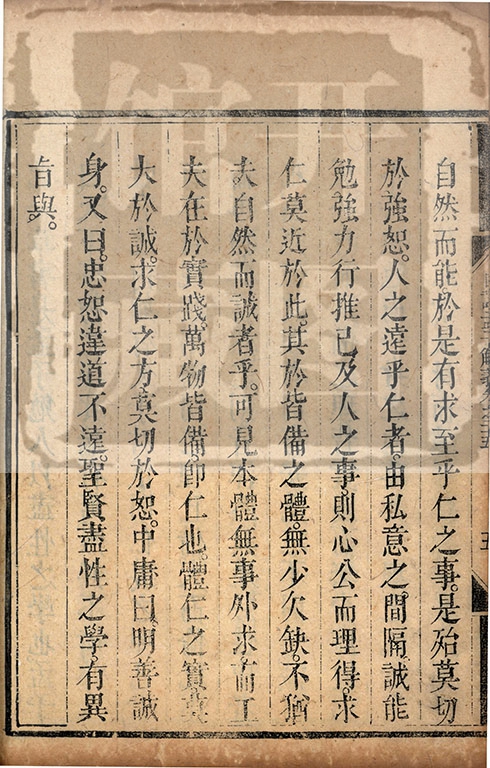 自然而能於是有求至乎仁之事是殆莫切
於強恕。人之遠乎仁者。由私意之間隔誠能
勉強力行推己及人之事。則心公而理得。求
仁莫近於此。其於皆備之體。無少欠缺。不猶
夫自然而誠者乎。可見本體無事外求而工
夫在於實踐。萬物皆備。即仁也。體仁之實莫
大於誠。求仁之方。莫切於恕。中庸曰。明善誠
身。又曰。忠恕違道不遠。聖賢盡性之學。有異
旨與。